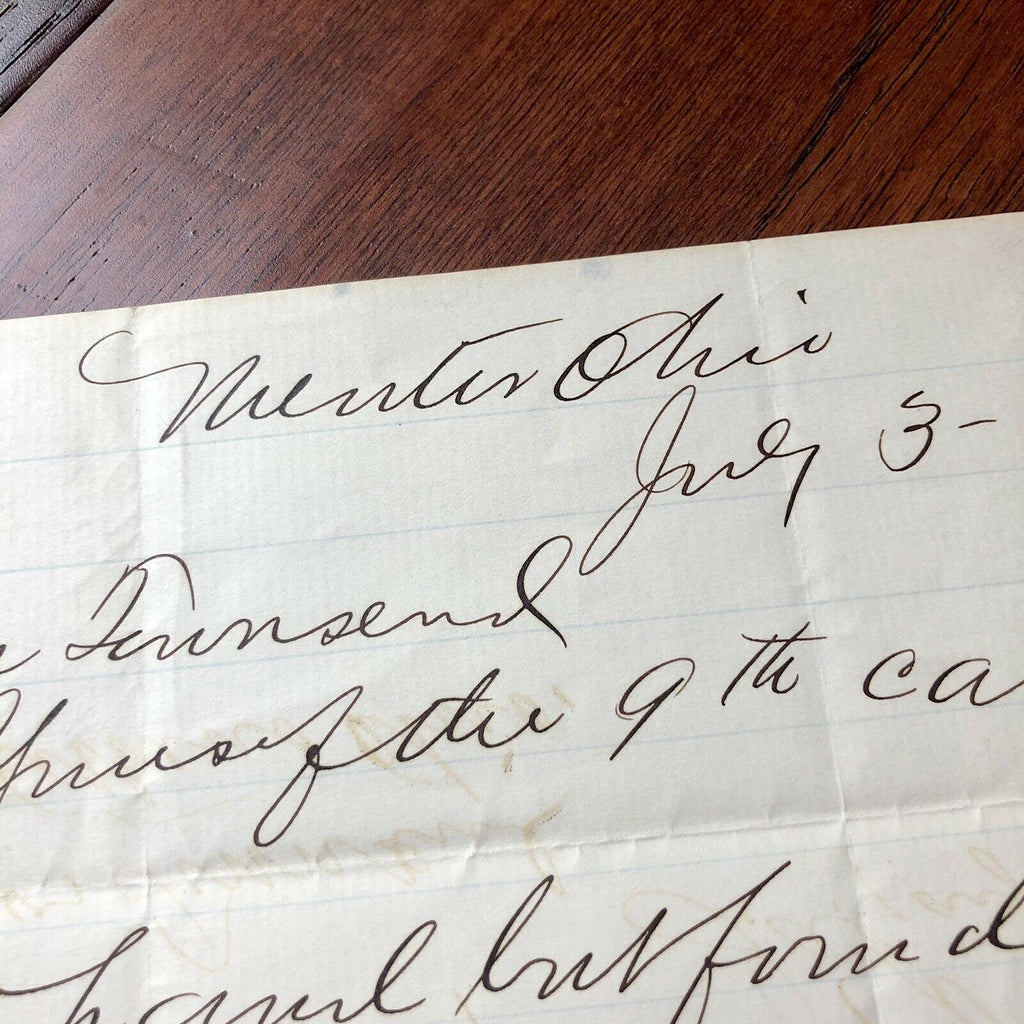 Mentor Ohio
July 3-
Townsend
Yours of the 9th ca
hand but found